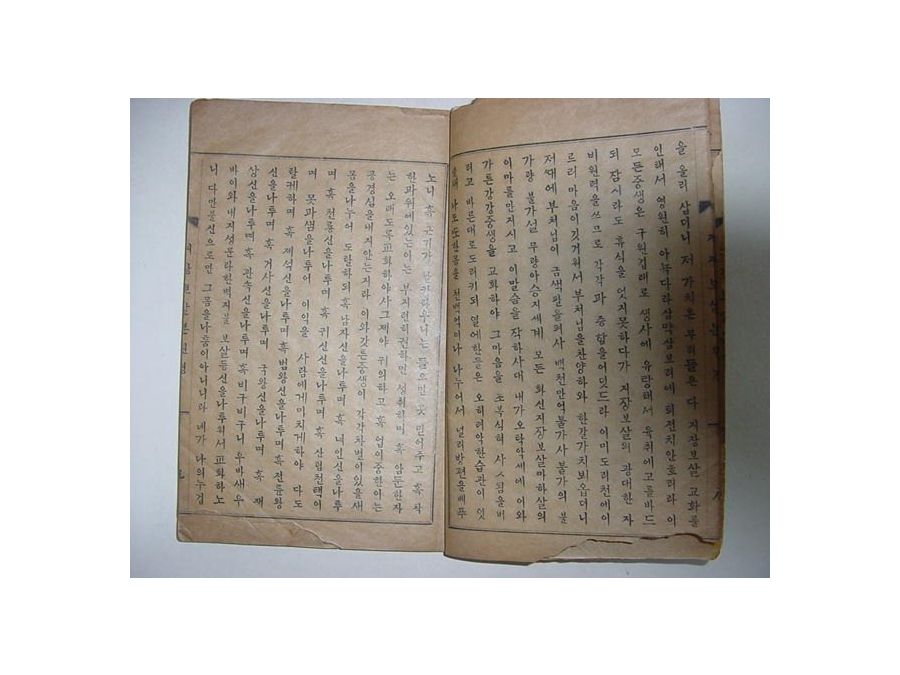 을 울리 삼머니 저 가치혼 무리들은 다 지장보살 교화를
인해서 영원히 아뇩다라삼먁삼보리에 퇴전치안흐리라 이
모든중생은 구원겁래로 생사에 유랑해서 육취에고를바드
되 잠시라도 휴식을 엇지못하다가 지장보살의 광대한 자
비원력을쓰므로 각각 과 증함을어덧드라 이미도리천에이
르러 마음이깃거워서 부처님을찬양하와 한갈가치뵈옵더니
저때에부처님이 금색팔들의사 백천만억불가사 불가의 불
가량 불가설 무량아승지세계 모든 화신지장보살마하살의
이마를만지시고 이말슴을작하사대 내가 오탁악세에 이와
가튼강강중생을 교화하야 그마음을 조복식혀 사
려고 바른대로도라키되 열에한둘은 오히려악한습관이 잇
나도 또한몸을 천백억이나 나누어서 널리방편을베푸
노니 혹 근기가 우니는 들으면 곳 믿어주고 혹 착
한과위에있는이는 부지런히권하면 성취하며 혹 암둔한자
는 오래도록교화하야사그제야 귀의하고 혹 업이중한이는
공경심을내지안는지라 이와갓튼중생이 각각차별이있을새
몸을나누어 도탈하되혹 남자신을나투며 혹 녀인신을나투
며 혹 천룡신을나투며 혹 귀신신을나투며 혹 산림천택이
며 못과샘을나투어 이익을 사람에게미치게하야 다도
랄케하며 혹 제석신을나투며 혹 범왕신을나투며혹전륜왕
신을나투며 혹 거사신을나투며 국왕신을나투며 혹 재
상신을나투며혹 관속신을나투며혹 비구비구니 우바새우
바이와내지성문라한벽지불 보살등신을나투워서교화하노
니 다만불신으로만 그몸을나툼이아니니라 네가 나의누겁